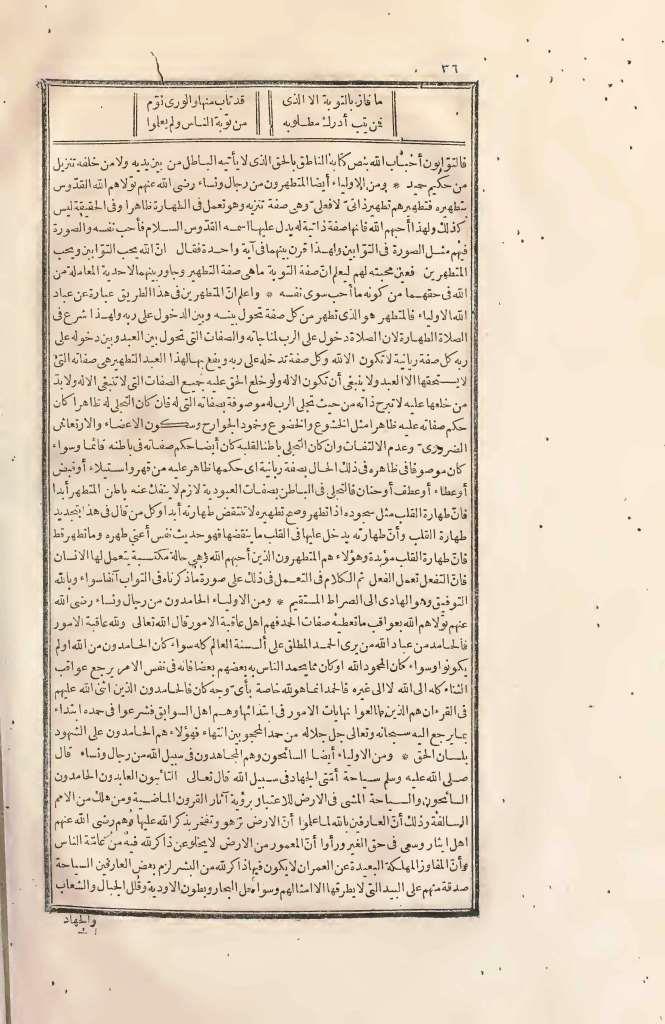 ٣٦
ما فاز بالتوبة الا الذى قد تاب منها والورى نوّم
فمن يتب أدرك مطلوبه من توبة الناس ولم يعلموا
فالتوّابون أحباب الله بنص كتابه الناطق بالحق الذى لا يأتيه الباطل من بين يديه ولا من خلفه تنزيل
من حكيم حميد * ومن الاولياء أيضا المتطهرون من رجال ونساء رضى الله عنهم تولاهم الله القدّوس
بتطهيره فتطهيرهم تطهير ذاتىّ لا فعلىّ وهى صفة تنزيه وهو تعمل فى الطهارة ظاهرا وفى الحقيقة ليس
كذلك ولهذا أحبهم الله فانها صفة ذاتية له يدل عليها اسمه القدّوس السلام فأحب نفسه والصورة
فيهم مثل الصورة فى التوّابين ولهذا قرن بينهما فى آية واحدة فقال انّ الله يحب التوّابين ويحب
المتطهرين فعين محبته لهم ليعلم انّ صفة التوبة ما هى صفة التطهير وجاور بينهما لاحدية المعاملة من
الله فى حقهما من كونه ما أحب سوى نفسه * واعلم انّ المتطهرين فى هذا الطريق عبارة عن عباد
الله الاولياء فالمتطهر هو الذى تطهر من كل صفة تحول بينه وبين الدخول على ربه ولهذا شرع فى
الصلاة الطهارة لان الصلاة دخول على الرب لمناجاته والصفات التى تحول بين العبد وبين دخوله على
ربه كل صفة ربانية لا تكون الا لله وكل صفة تدخله على ربه ويقع بها لهذا العبد التطهير هى صفاته التى
لا يستحقها الا العبد ولا ينبغى أن تكون الا له ولو خلع الحق عليه جميع الصفات التى لا تنبغى الا له ولا بدّ
من خلعها عليه لا تبرح ذاته من حيث تجلى الرب له موصوفة بصفاته التى له فان كان التجلى له ظاهرا كان
حكم صفاته عليه ظاهرا مثل الخشوع والخضوع وخمود الجوارح وسكون الاعضاء والارتعاش
الضرورىّ وعدم الالتفات وان كان التجلى باطنا لقلبه كان أيضا حكم صفاته فى باطنه قائما وسواء
كان موصوفا فى ظاهره فى ذلك الحال بصفة ربانية أى حكمها ظاهر عليه من قهر واستيلاء أو قبض
أو عطاء أو عطف أو حنان فالتجلى فى الباطن بصفات العبودية لازم لا ينفك عنه باطن المتطهر أبدا
فانّ طهارة القلب مثل سجوده اذا تطهر وصح تطهيره لا تنتقض طهارته أبدا وكل من قال فى هذا بتجديد
طهارة القلب وأنّ طهارته يدخل عليها فى القلب ما ينقضها فهو حديث نفس أعنى طهره وما تطهر قط
فانّ طهارة القلب مؤبدة وهؤلاء هم المتطهرون الذين أحبهم الله وهى حالة مكتسبة يتعمل لها الانسان
فانّ التفعل تعمل الفعل ثم الكلام فى التعمل فى ذلك على صورة ما ذكرناه فى التواب آنفا سواء وبالله
التوفيق وهو الهادى الى الصراط المستقيم * ومن الاولياء الحامدون من رجال ونساء رضى الله
عنهم تولاهم الله بعواقب ما تعطيه صفات الحمد فهم اهل عاقبة الامور قال الله تعالى ولله عاقبة الامور
فالحامد من عباد الله من يرى الحمد المطلق على ألسنة العالم كله سواء كان الحامدون من اهل الله اولم
يكونوا وسواء كان المحمود الله او كان مما يحمد الناس به بعضهم بعضا فانه فى نفس الامر يرجع عواقب
الثناء كله الى الله لا الى غيره فالحمد انما هو لله خاصة بأىّ وجه كان فالحامدون الذين اثنى الله عليهم
فى القرءان هم الذين طالعوا نهايات الامور فى ابتدائها وهم اهل السوابق فشرعوا فى حمده ابتداء
بما يرجع اليه سبحانه وتعالى جل جلاله من حمد المحجوبين انتهاء فهؤلاء هم الحامدون على الشهود
بلسان الحق * ومن الاولياء أيضا السائحون وهم المجاهدون فى سبيل الله من رجال ونساء قال
صلى الله عليه وسلم سياحة أمّتى الجهاد فى سبيل الله قال تعالى التائبون العابدون الحامدون
السائحون والسياحة المشى فى الارض للاعتبار برؤية آثار القرون الماضية ومن هلك من الامم
السالفة وذلك أنّ العارفين بالله لما علموا أنّ الارض تزهو وتفخر بذكر الله عليها وهم رضى الله عنهم
اهل ايثار وسعى فى حق الغير ورأوا أنّ المعمور من الارض لا يخلو عن ذاكر لله فيه من عامّة الناس
وأنّ المفاوز المهلكة البعيدة عن العمران لا يكون فيها ذاكر لله من البشر لزم بعض العارفين السياحة
صدقة منهم على البيد التى لا يطرقها الا امثالهم وسواحل البحار وبطون الاودية وقلل الجبال والشعاب
والجهاد